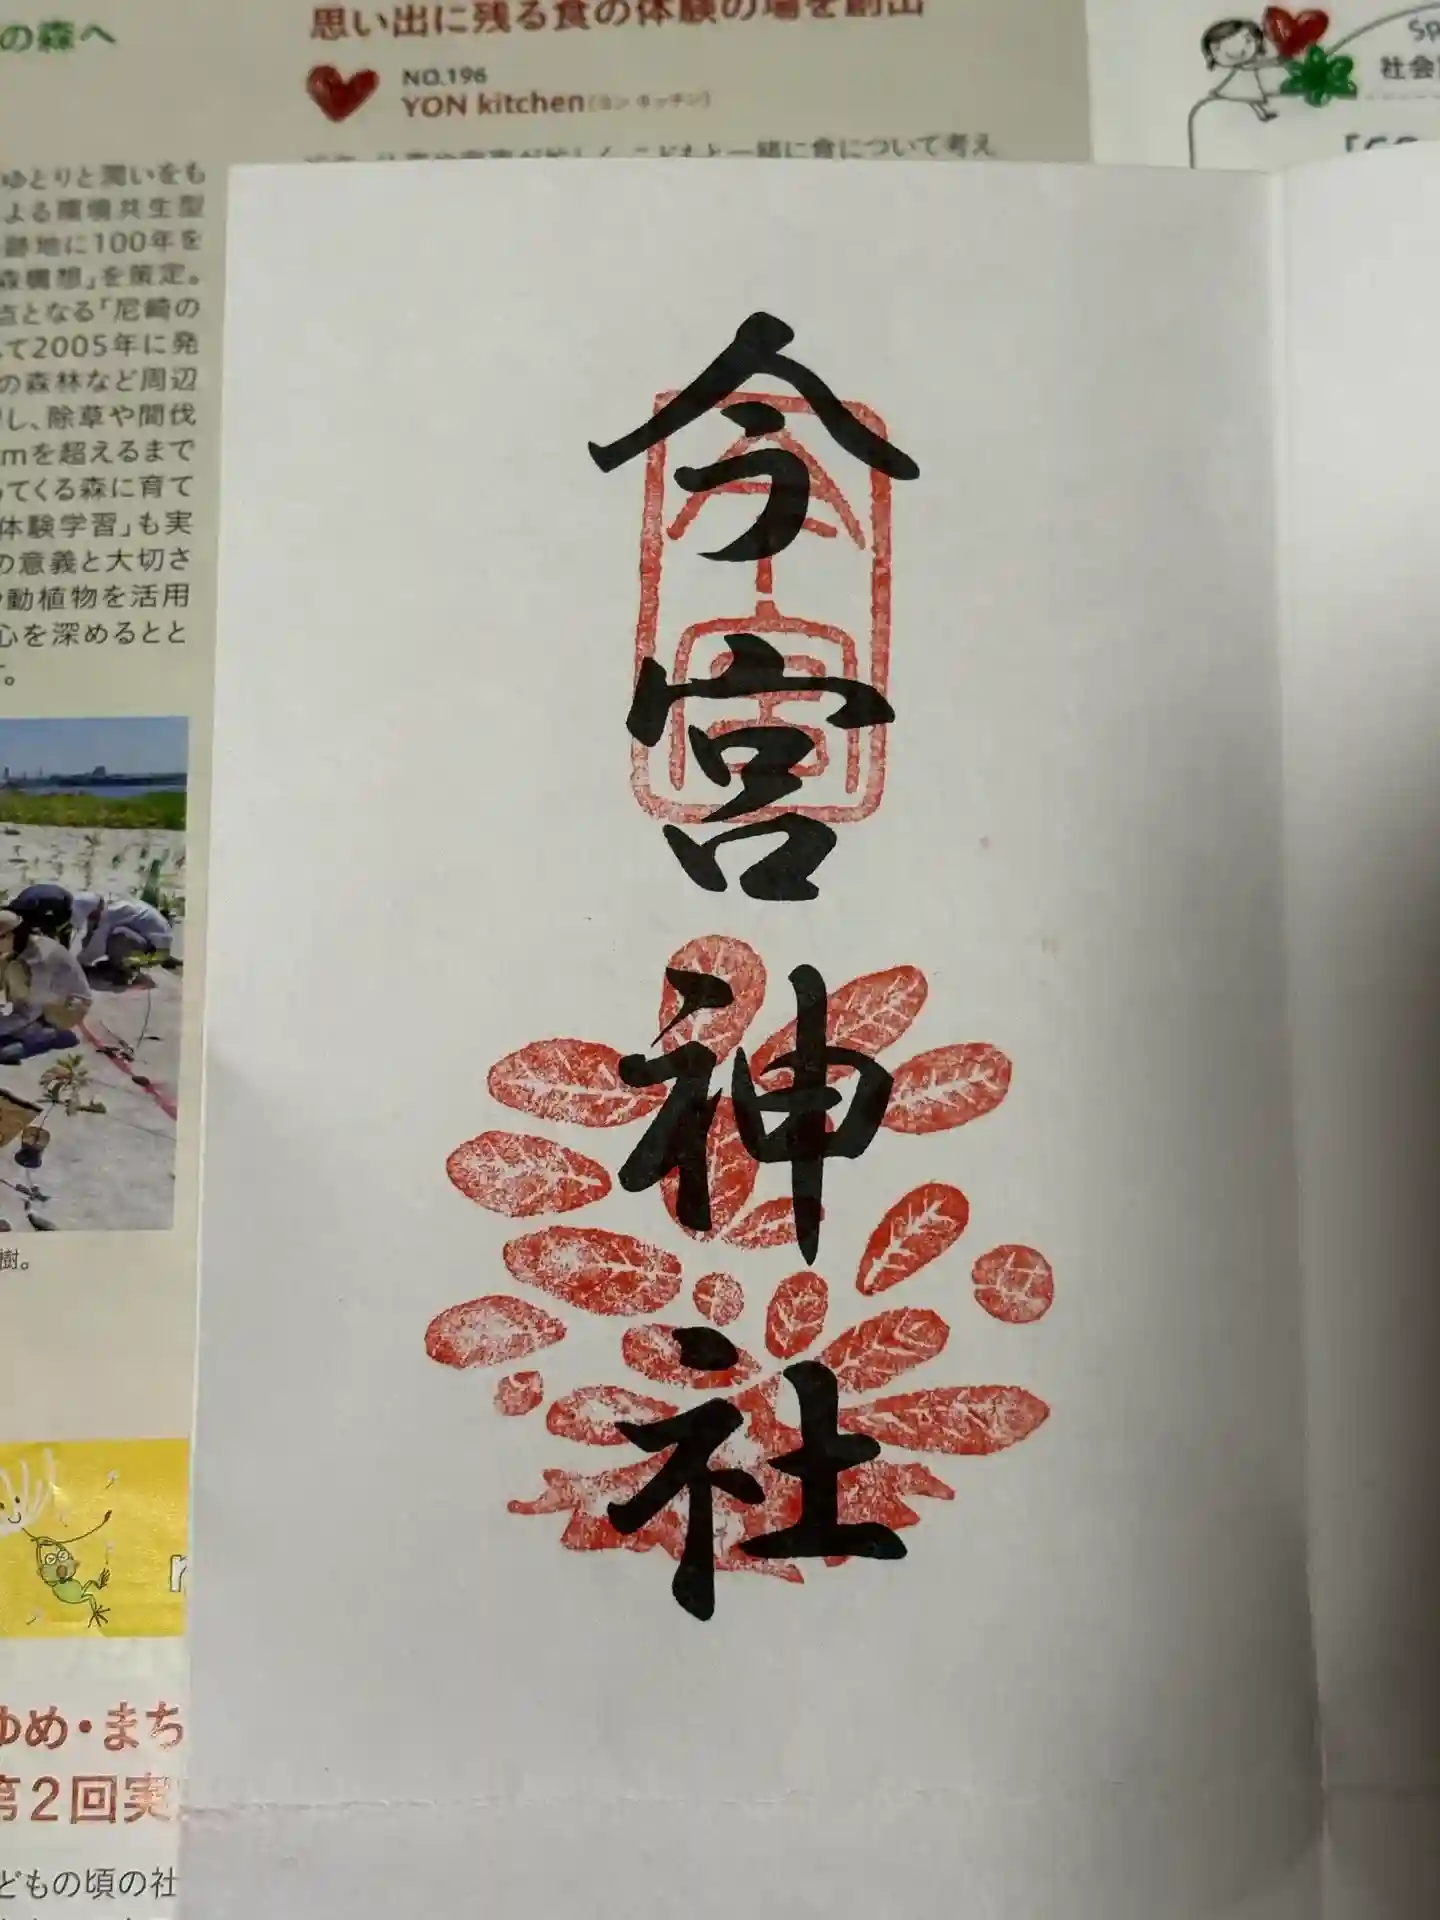 の森へ
思い出に残る食の体験の場を創出
NO.196
YON kitchen(ヨン キッチン)
社会
ゆとりと潤いをも
よる環境共生型
跡地に100年を
森構想」を策定。
点となる「尼崎の
て2005年に発
の森林など周辺
し、除草や間伐
mを超えるまで
てくる森に育て
体験学習」も実
の意義と大切さ
動植物を活用
心を深めるとと
。
樹。
ゆめ・まち
第2回実
どもの頃の社
今宮神社
今宮